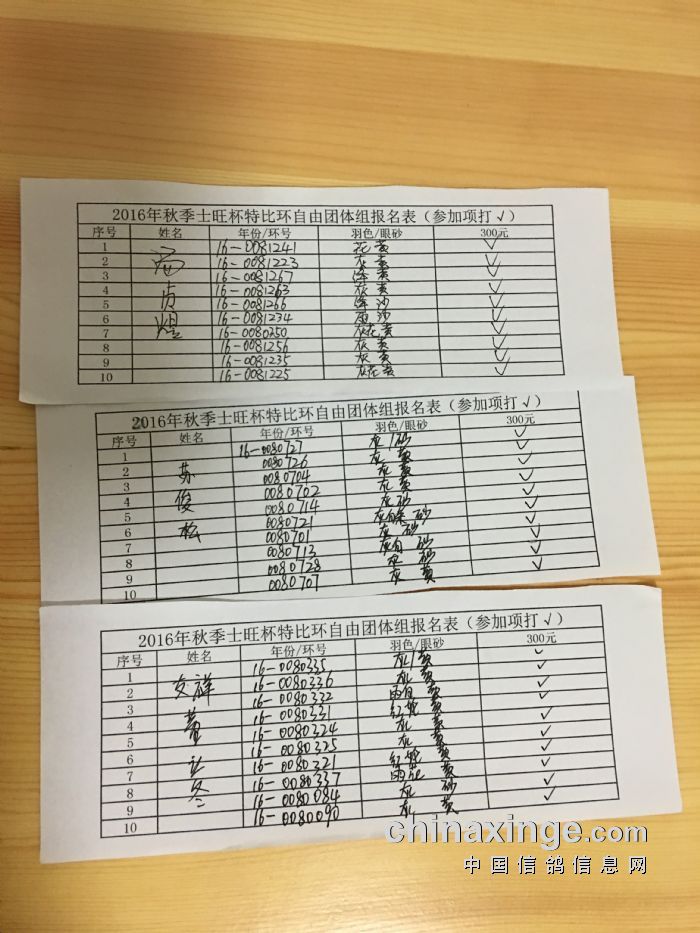 2016年秋季士旺杯特比环自由团体组报名表（参加项打√）
序号 姓名 年份/环号 羽色/眼砂 300元
1 16-0081241 花黄 √
2 16-0081223 灰黄 √
3 16-0081267 黄 √
4 16-0081263 灰黄 √
5 16-0081266 沙 √
6 16-0081234 雨沙 √
7 煌 16-0080250 灰花黄 √
8 16-0081256 灰黄 √
9 16-0081235 灰黄 √
10 16-0081225 灰花黄 √
2016年秋季士旺杯特比环自由团体组报名表（参加项打√）
序号 姓名 年份/环号 羽色/眼砂 300元
1 16-0080727 灰/砂 √
2 苏 0080726 灰 黄 √
3 0080704 灰 黄 √
4 俊 0080702 灰 黄 √
5 0080714 灰 砂 √
6 松 0080721 砂 √
7 0080701 灰 砂 √
8 0080713 砂 √
9 0080728 灰 砂 √
10 0080707 灰 黄 √
2016年秋季士旺杯特比环自由团体组报名表（参加项打√）
序号 姓名 年份/环号 羽色/眼砂 300元
1 16-0080335 灰/黄 √
2 友祥 16-0080336 灰 黄 √
3 16-0080332 黄 √
4 黄 16-0080331 红轮 黄 √
5 16-0080324 灰 黄 √
6 让 16-0080325 灰 黄 √
7 16-0080321 红轮 黄 √
8 冬 16-0080337 雨花 黄 √
9 16-0080084 灰 砂 √
10 16-0080090 灰 黄 √
chinaxinge.com
中国信鸽信息网